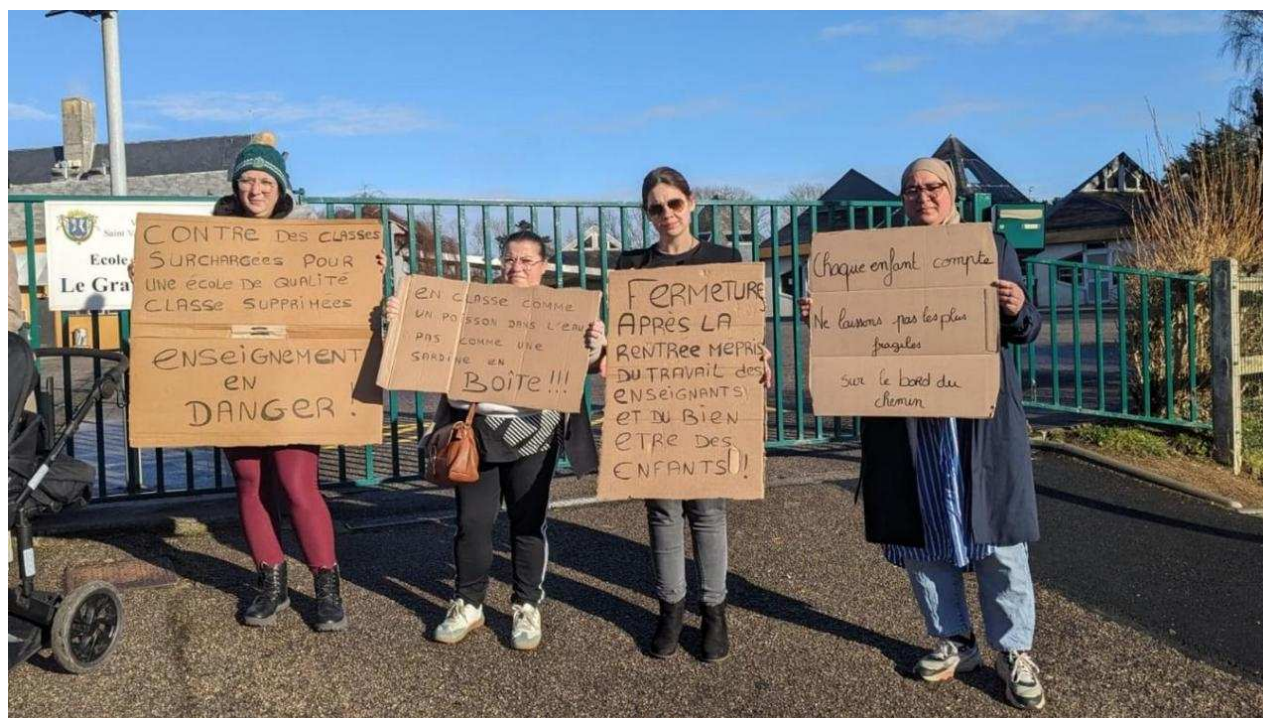 Saint V
Ecole
Le Gra
CONTRE DES CLASSES
SURCHARGÉES POUR
UNE ÉCOLE DE QUALITÉ
CLASSE SUPPRIMÉES
ENSEIGNEMENT
EN
DANGER !
EN CLASSE COMME
UN POISSON DANS L'EAU
PAS COMME UNE
SARDINE EN
BOÎTE !!!
FERMETURE
APRÈS LA
RENTREE MEPRIS
DU TRAVAIL des
ENSEIGNANTS
ET DU BIEN
ETRE DES
ENFANTS !!
Chaque enfant compte
Ne laissons pas les plus
fragiles
sur le bord du
chemin